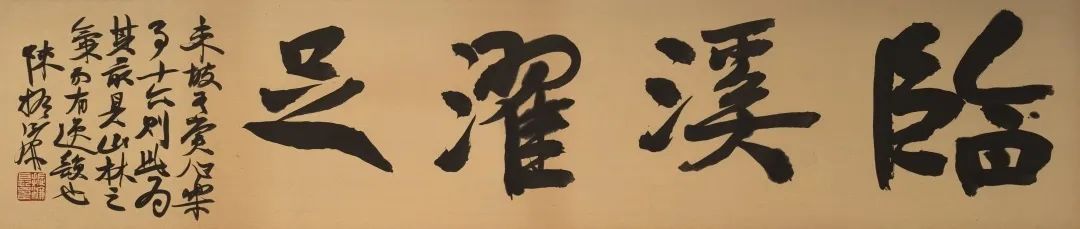 臨溪濯足
東坡有賞心樂
事十六則此為
其最具山林之
氣而有逸韻也
陳振濂